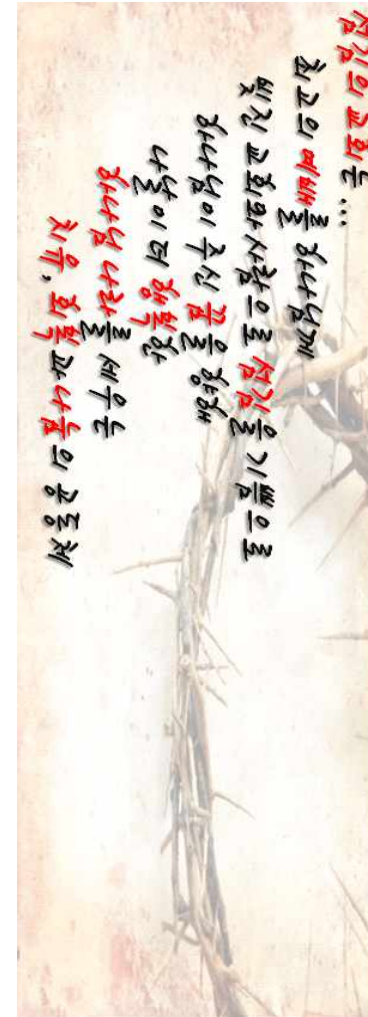 섬김의 교회는...
최고의 예배를 하나님께
빚진 교회와 사람으로 섬김을 기쁨으로
하나님이 주신 꿈을 향해
나눔이 더 행복한
하나님 나라를 세우는
치유, 회복과 나눔의 공동체